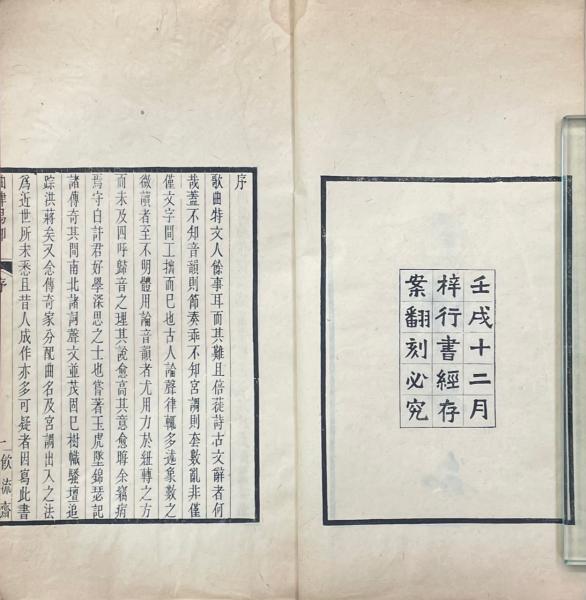 壬戌十二月
梓行書經存
案翻刻必究
序
歌曲特文人餘事耳而其難且倍蓰詩古文辭者何
哉蓋不知音韻則節奏乖不知宮調則套數亂非僅
僅文字間工揣而巳也古人論聲律輒多述象數之
微讀者至不明體用論音韻者尤用力於紐轉之方
而未及四呼歸音之理其說愈高其意愈晦余竊病
焉守白許君好學深思之士也嘗著玉虎墜錦瑟記
諸傳奇其間南北諸詞聲文並茂固巳樹幟騷壇追
踪洪蔣矣又念傳奇家分配曲名及宮調出入之法
為近世所未悉且昔人成作亦多可疑者因寫此書
曲律易知
序
一
飲流齋